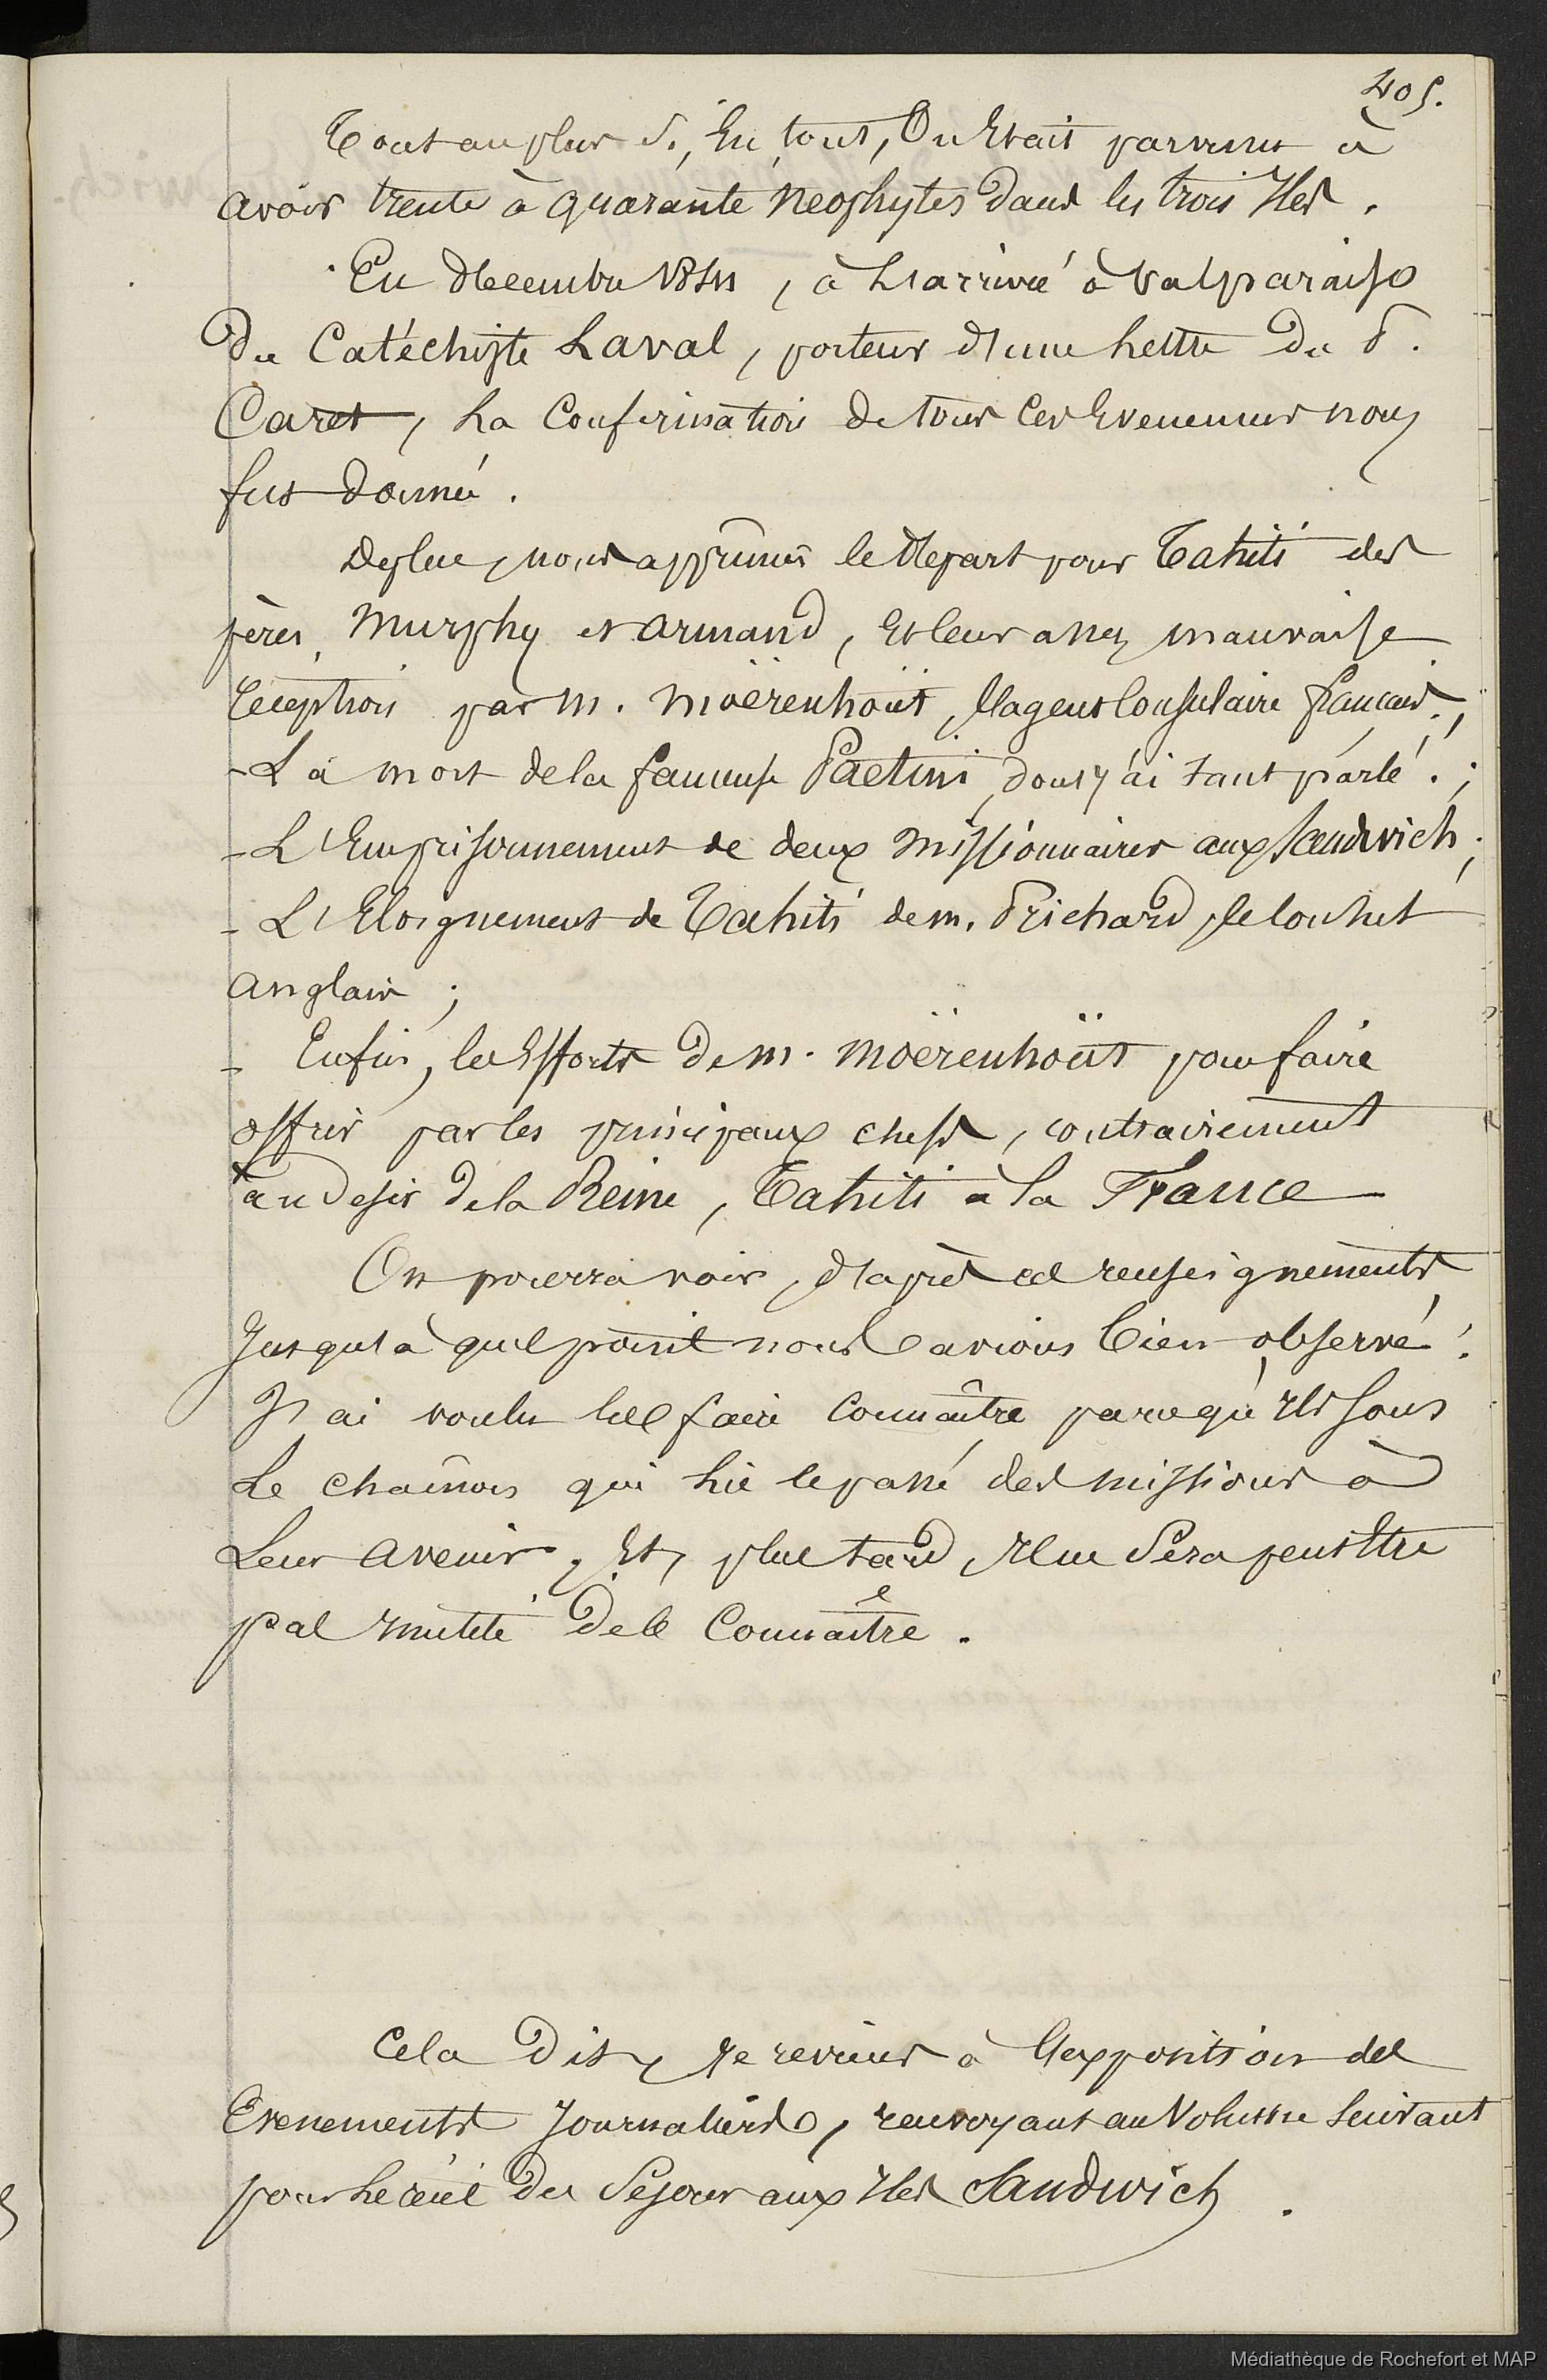 405.
Tout au plus si, En tout, On Etait parvenu à
avoir trente à quarante Neophytes dans les trois Iles.
En Decembre 1841, à L'arrivée à Valparaiso
Du Catéchiste Laval, porteur d'une Lettre Du P.
Caret, La Confirmation de tous Ces Evenemens nous
fut Donnée.
De plus, nous apprîmes le Départ pour Tahiti des
pères, Murphy et Armand, Et leur assez mauvaise
réception par M. Moërenhoüt, l'agent Consulaire français.;
- La mort de la fameuse Paetini, dont j'ai tant parlé.;
- L'Emprisonnement de deux Missionnaires aux Sandwich;
- L'Eloignement de Tahiti de M. Prichard, le Consul
Anglais;
- Enfin, les Efforts De M. Moërenhoüt pour faire
offrir par les principaux chefs, contrairement
au desir de la Reine, Tahiti à la France
On pourra voir, d'après ces renseignements
Jusqu'à quel point nous avions bien observé.
J'ai voulu les faire Connaître parce qu'ils sont
Le chaînon qui Lie le passé des Missions à
Leur avenir, Et, plus tard, il ne Sera peut Etre
pas inutile De le Connaître.
Cela Dit, Je reviens à l'exposition des
Evenements Journaliers, renvoyant au Volume Suivant
pour Le récit Du Sejour aux Iles Sandwich.
Médiathèque de Rochefort et MAP